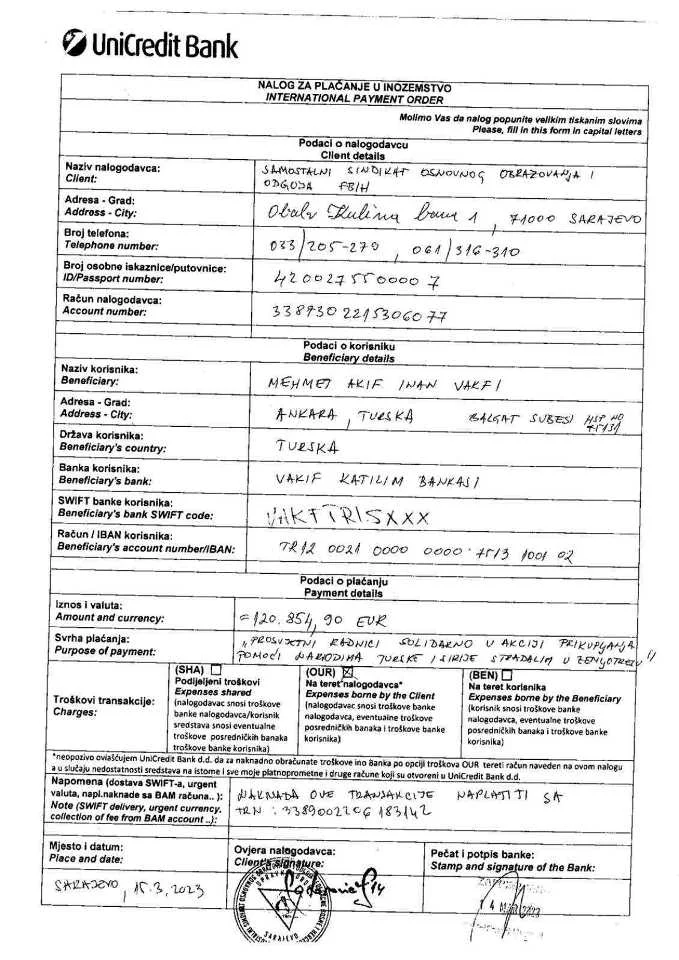 UniCredit Bank
NALOG ZA PLAĆANJE U INOZEMSTVO
INTERNATIONAL PAYMENT ORDER
Molimo Vas da nalog popunite velikim tiskanim slovima
Please, fill in this form in capital letters
Podaci o nalogodavcu
Client details
Naziv nalogodavca:
Client:
SAMOSTALNI SINDIKAT OSNOVNOG OBRAZOVANJA I
ODGOJA FBIH
Adresa - Grad:
Address - City:
Obala Kulina bana 1, 71000 SARAJEVO
Broj telefona:
Telephone number:
033/205-270, 061/316-310
Broj osobne iskaznice/putovnice:
ID/Passport number:
4200275500007
Račun nalogodavca:
Account number:
3389302215306077
Podaci o korisniku
Beneficiary details
Naziv korisnika:
Beneficiary:
MEHMET AKIF INAN VAKFI
Adresa - Grad:
Address - City:
ANKARA, TURSKA BALGAT SUBESI HSP NO
75131
Država korisnika:
Beneficiary's country:
TURSKA
Banka korisnika:
Beneficiary's bank:
VAKIF KATILIM BANKASI
SWIFT banke korisnika:
Beneficiary's bank SWIFT code:
VAKFTRISXXX
Račun / IBAN korisnika:
Beneficiary's account number/IBAN:
TR12 0021 0000 0000 7513 1001 02
Podaci o plaćanju
Payment details
Iznos i valuta:
Amount and currency:
=120.854,90 EUR
Svrha plaćanja:
Purpose of payment:
"PROSVJETNI RADNICI SOLIDARNO U AKCIJI PRIKUPLJANJA
POMOĆI NARODIMA TURSKE I SIRIJE STRADALIM U ZEMLJOTRESU"
Troškovi transakcije:
Charges:
(SHA)
Podijeljeni troškovi
Expenses shared
(nalogodavac snosi troškove
banke nalogodavca/korisnik
sredstava snosi eventualne
troškove posredničkih banaka
troškove banke korisnika)
(OUR)
Na teret nalogodavca*
Expenses borne by the Client
(nalogodavac snosi troškove banke
nalogodavca, eventualne troškove
posredničkih banaka i troškove banke
korisnika)
(BEN)
Na teret korisnika
Expenses borne by the Beneficiary
(korisnik snosi troškove banke
nalogodavca, eventualne troškove
posredničkih banaka i troškove banke
korisnika)
*neopozivo ovlašćujem UniCredit Bank d.d. da za naknadno obračunate troškove ino Banka po opciji troškova OUR tereti račun naveden na ovom nalogu
a u slučaju nedostatnosti sredstava na istome i sve moje platnoprometne i druge račune koji su otvoreni u UniCredit Bank d.d.
Napomena (dostava SWIFT-a, urgent
valuta, napl.naknade sa BAM računa.. ):
Note (SWIFT delivery, urgent currency.
collection of fee from BAM account ..):
NAKNADA OVE TRANSAKCIJE NAPLATITI SA
TRN: 3389002206183142
Mjesto i datum:
Place and date:
SARAJEVO, 15.3.2023
Ovjera nalogodavca:
Client's signature:
SARAJEVO
Pečat i potpis banke:
Stamp and signature of the Bank: